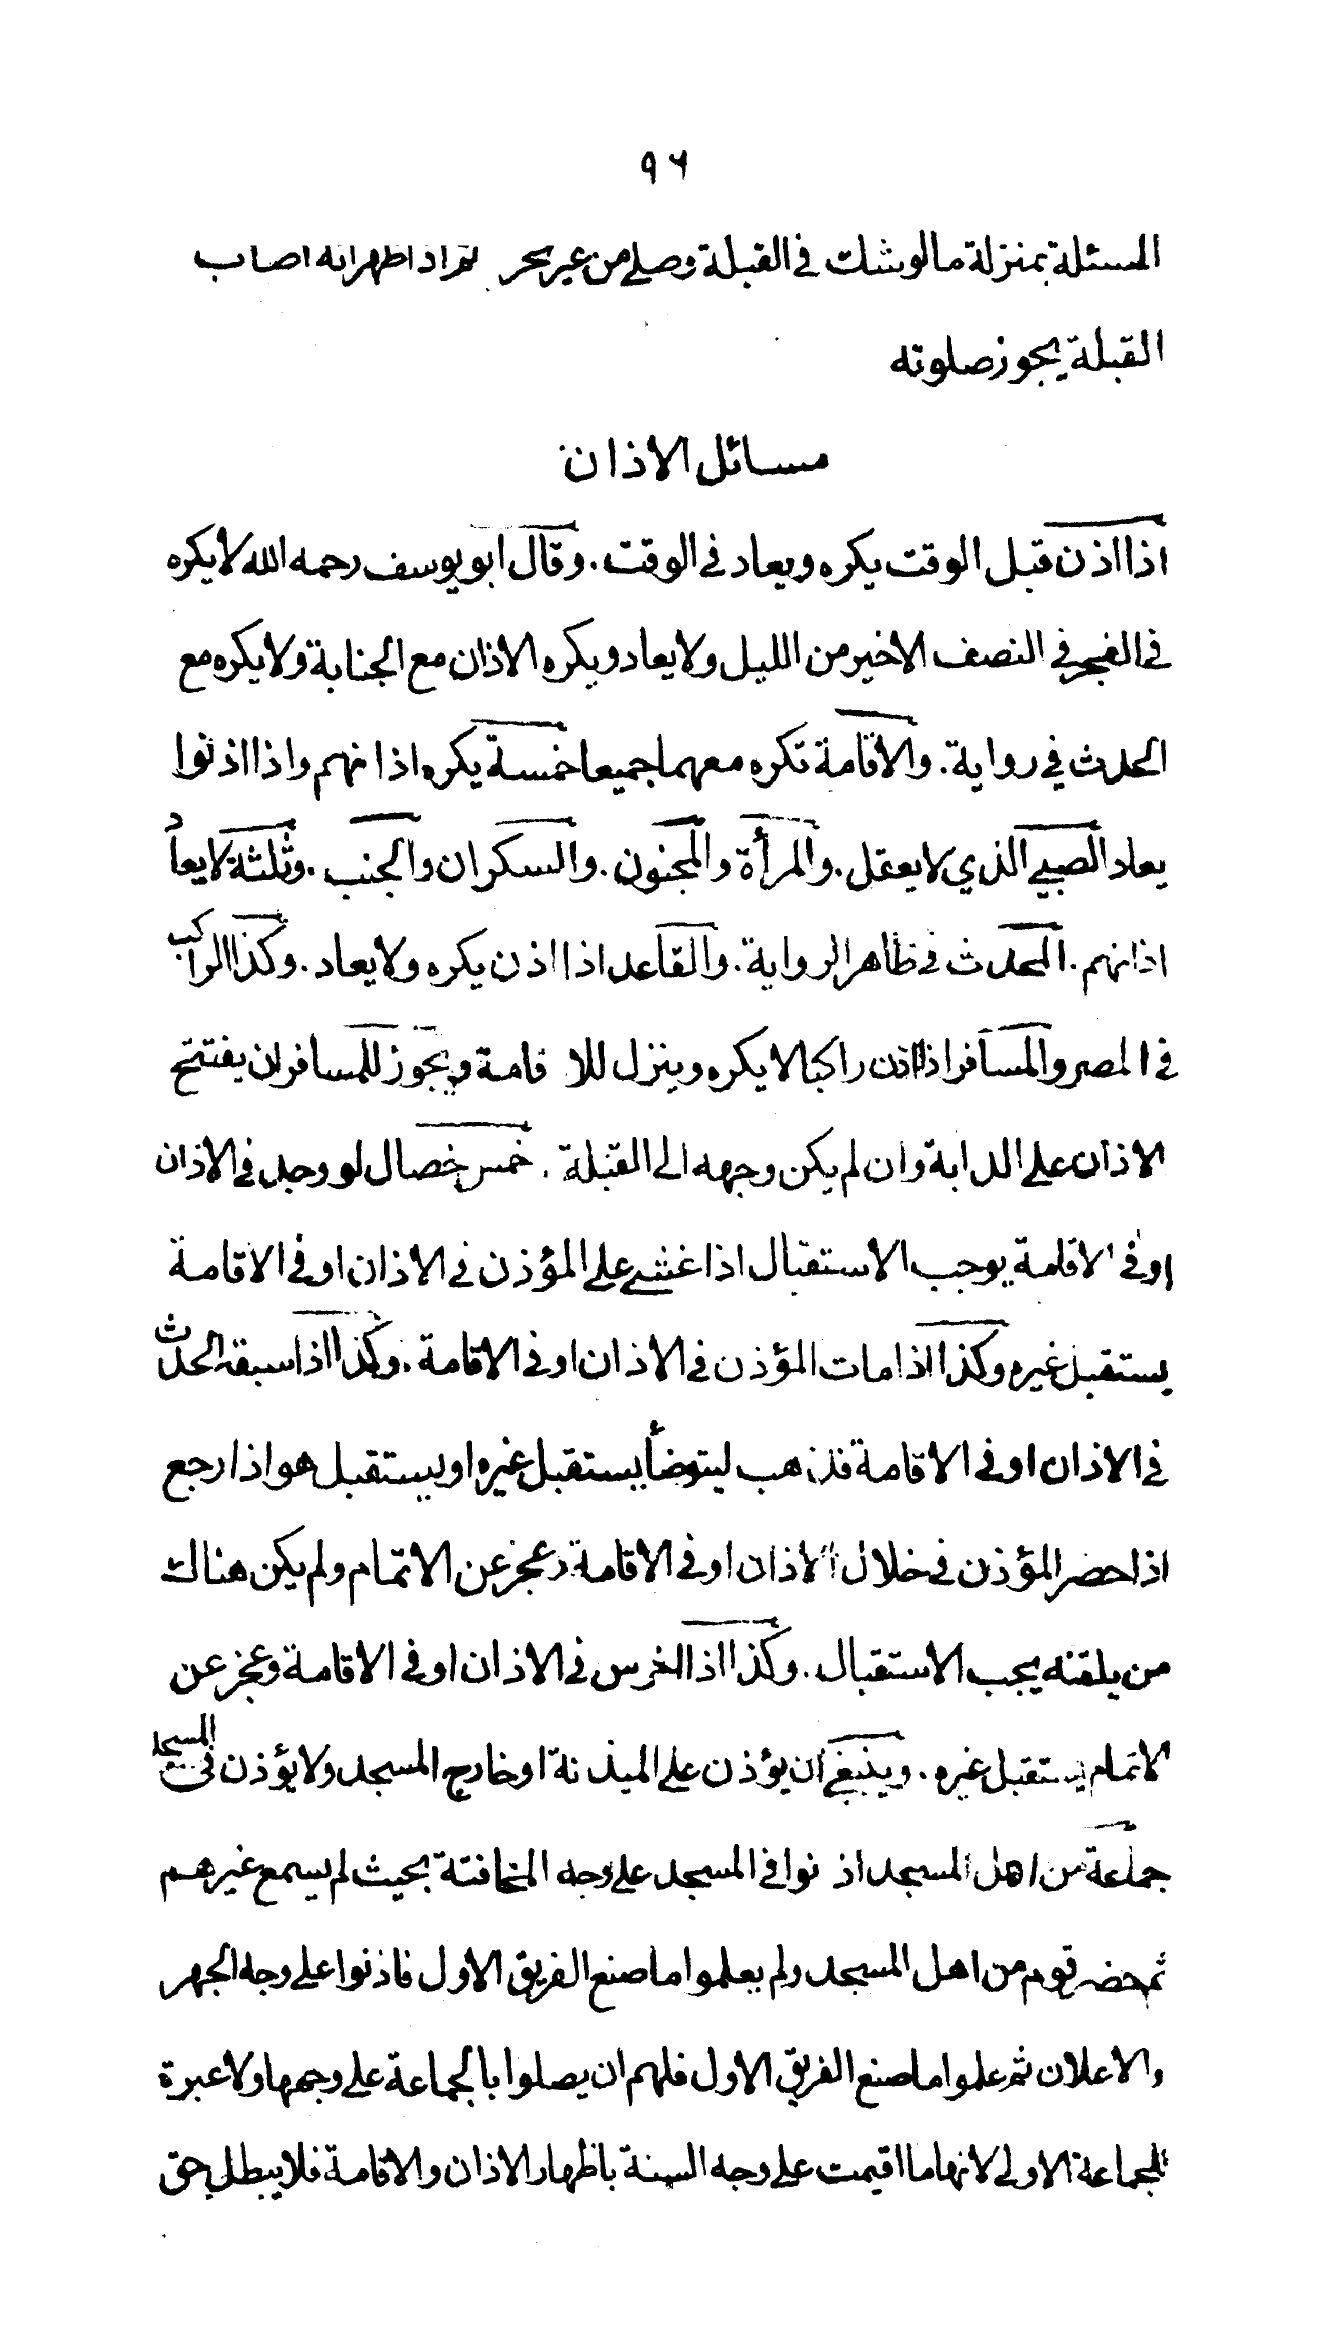 ٩٦
المسئلة بمنزلة ما لو شك في القبلة وصلى من غير تحر ثم اذا ظهر انه اصاب
القبلة يجوز صلوته
مسائل الاذان
اذا اذن قبل الوقت يكره ويعاد في الوقت . وقال ابو يوسف رحمه الله لا يكره
في الفجر في النصف الاخير من الليل ولا يعاد ويكره الاذان مع الجنابة ولا يكره مع
الحدث في رواية . والاقامة تكره معهما جميعا خمسة يكره اذانهم واذا اذنوا
يعاد الصبي الذي لا يعقل . والمرأة والمجنون . والسكران والجنب . وثلثة لا يعاد
اذانهم . المحدث في ظاهر الرواية . والقاعد اذا اذن يكره ولا يعاد . وكذا الراكب
في المصر والمسافر اذا اذن راكبا لا يكره وينزل للاقامة ويجوز للمسافر ان يفتتح
الاذان على الدابة وان لم يكن وجهه الى القبلة . خمس خصال لو وجد في الاذان
او في الاقامة يوجب الاستقبال اذا غشي على المؤذن في الاذان او في الاقامة
يستقبل غيره وكذا اذا مات المؤذن في الاذان او في الاقامة . وكذا اذا سبقه الحدث
في الاذان او في الاقامة فذهب ليتوضأ يستقبل غيره او يستقبل هو اذا رجع
اذا حصر المؤذن في خلال الاذان او في الاقامة وعجز عن الاتمام ولم يكن هناك
من يلقنه يجب الاستقبال . وكذا اذا الخرس في الاذان او في الاقامة وعجز عن
الاتمام يستقبل غيره . وينبغي ان يؤذن على الميذنة او خارج المسجد ولا يؤذن في المسجد
جماعة من اهل المسجد اذنوا في المسجد على وجه المخافتة بحيث لم يسمع غيرهم
ثم حضر قوم من اهل المسجد ولم يعلموا ما صنع الفريق الاول فاذنوا على وجه الجهر
والاعلان ثم علموا ما صنع الفريق الاول فلهم ان يصلوا بالجماعة على وجهها ولا عبرة
للجماعة الاولى لانها ما اقيمت على وجه السنة باظهار الاذان والاقامة فلا يبطل حق